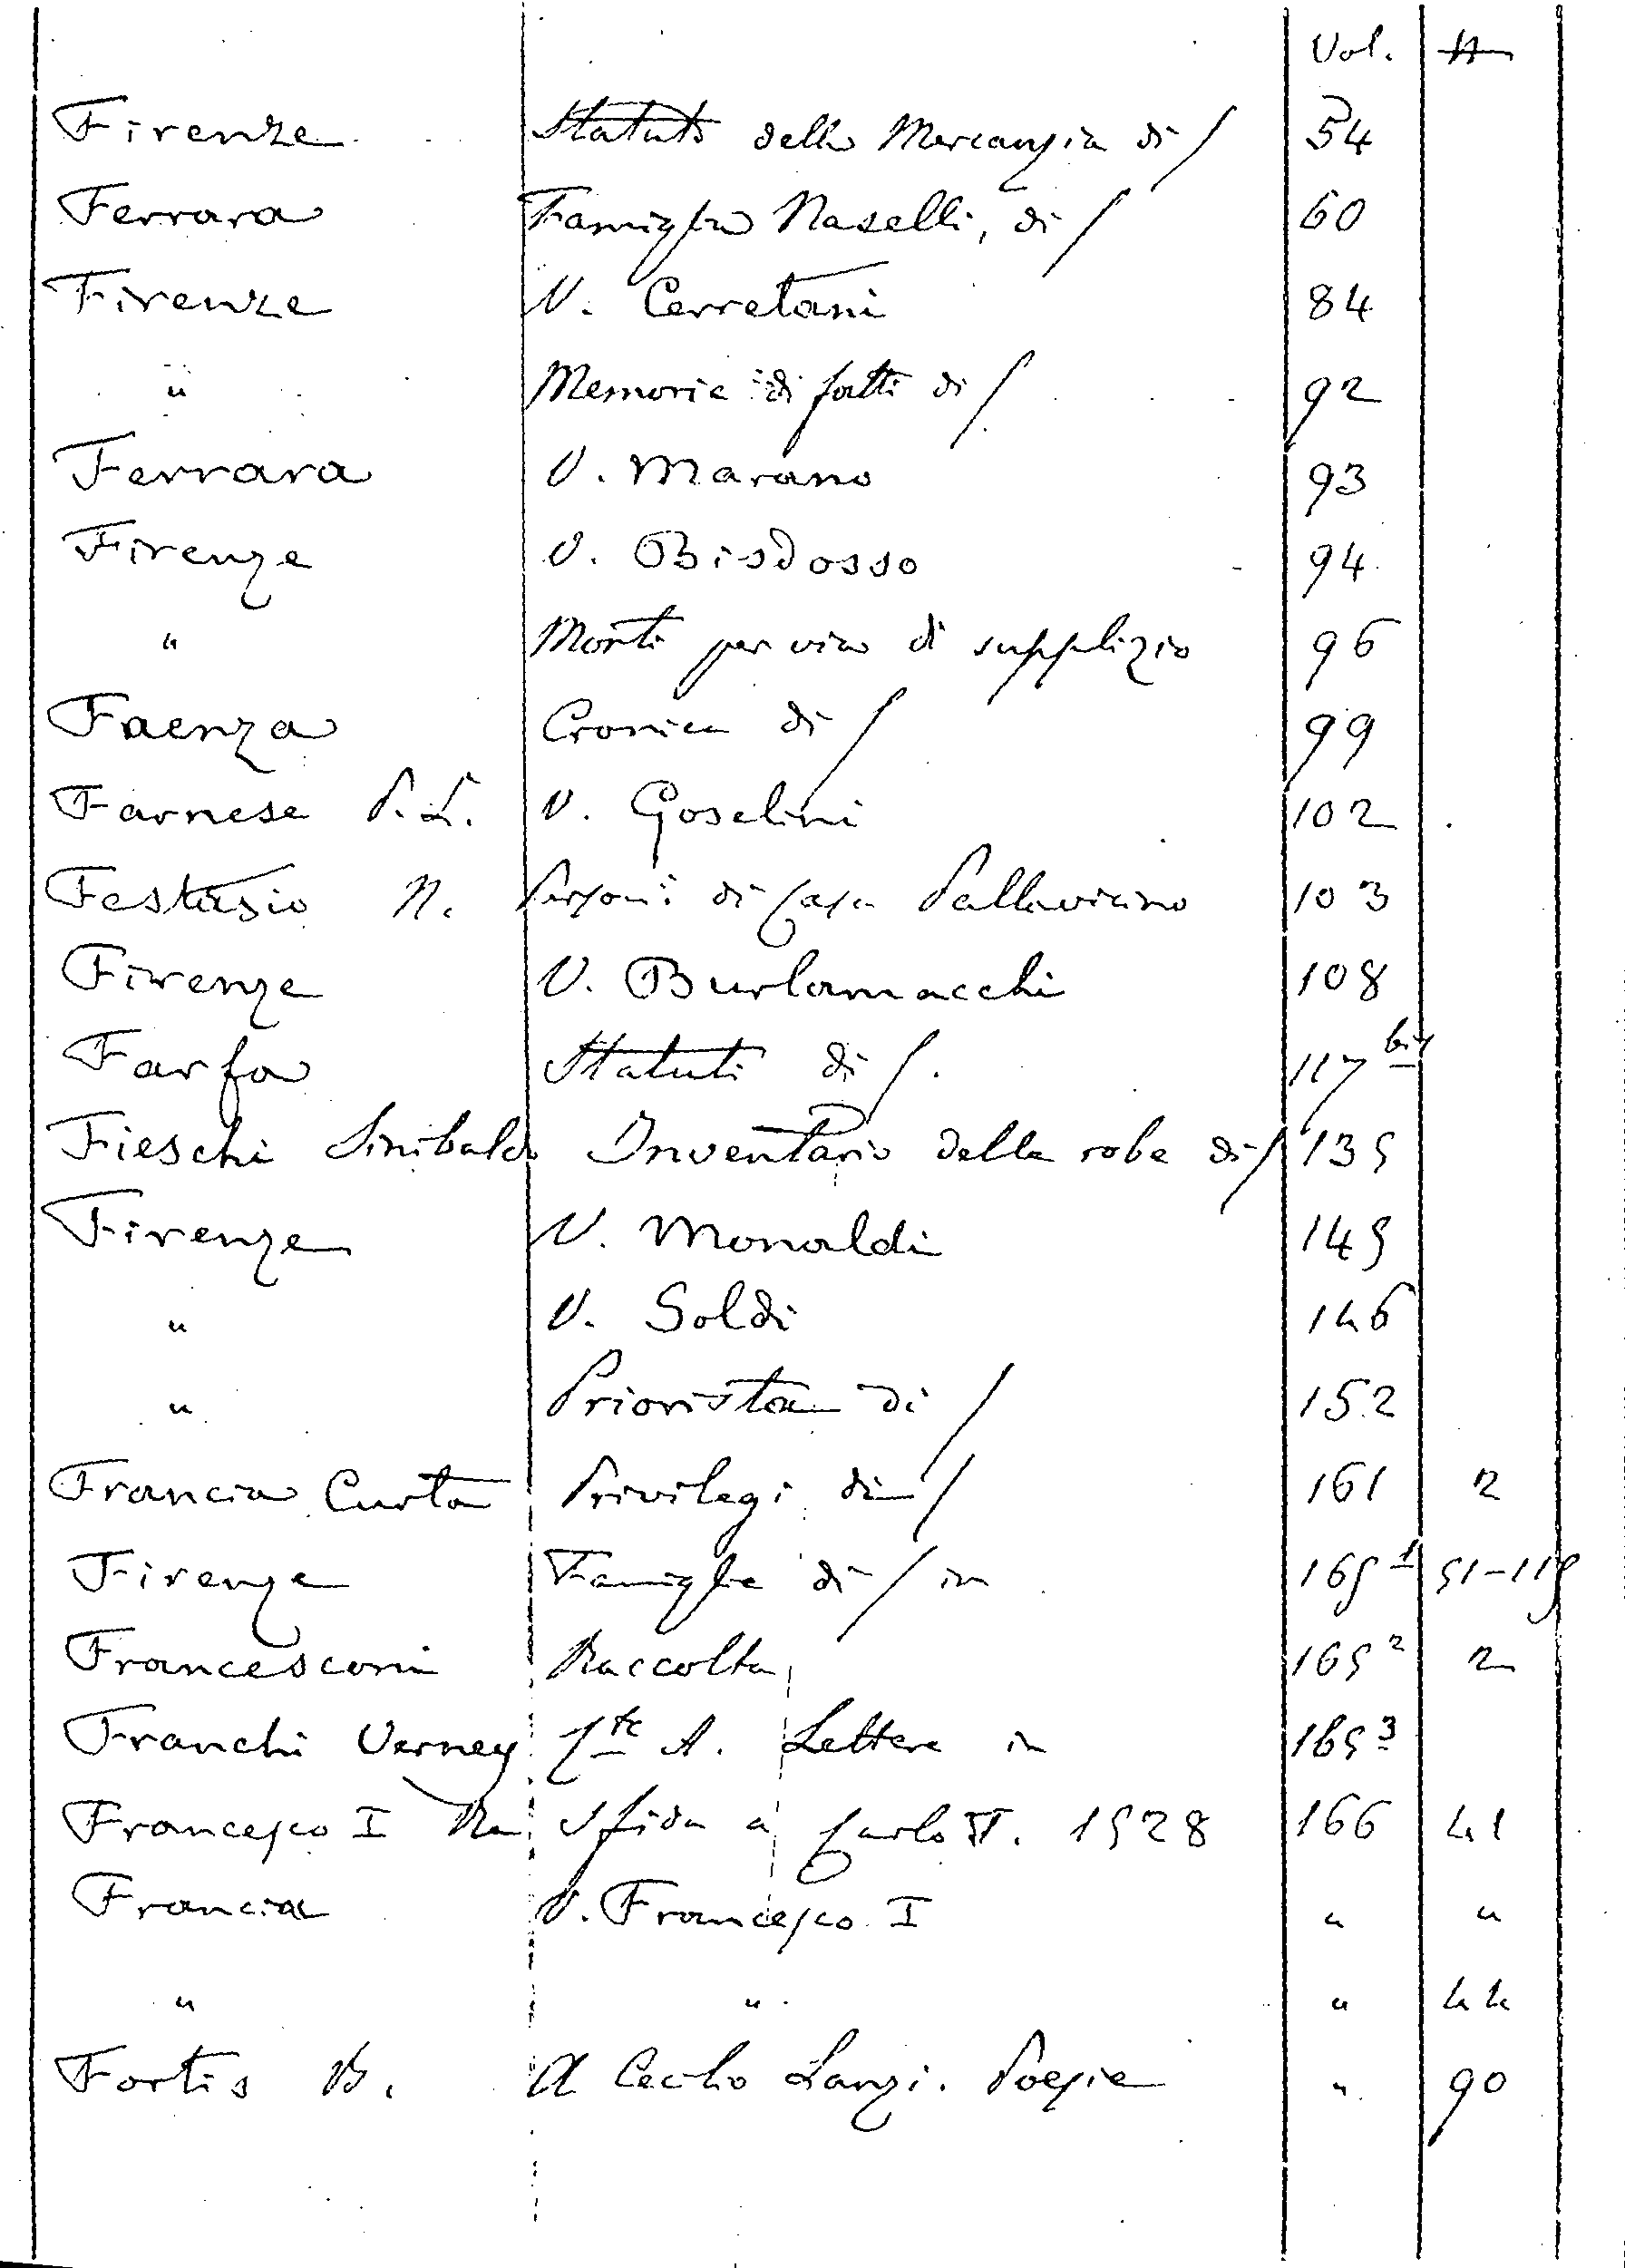 Vol. N
Firenze Statuto della Mercanzia di / 54
Ferrara Famiglia Naselli, di / 60
Firenze V. Cerretani 84
" Memorie di fatti di / 92
Ferrara V. Marano 93
Firenze V. Bisdosso 94
" Morti per via di supplizio 96
Faenza Cronica di / 99
Farnese P. L. V. Goselini 102
Festasio N. di Casa Pallavicino 103
Firenze V. Burlamacchi 108
Farfa Statuti di /. 117 bis
Fieschi Sinibaldo Inventario delle robe di / 135
Firenze V. Monaldi 145
" V. Soldi 146
" Priorista di / 152
Francia Curta Privilegi di / 161 2
Firenze Famiglie di / in 165 1 51-115
Francesconi Raccolta 165 2 2
Franchi Verney Cte A. Lettere in 165 3
Francesco I Re Sfida a Carlo V. 1528 166 41
Francia V. Francesco I " "
" " " 44
Fortis B. A Cecilio Lanzi. Poesie " 90